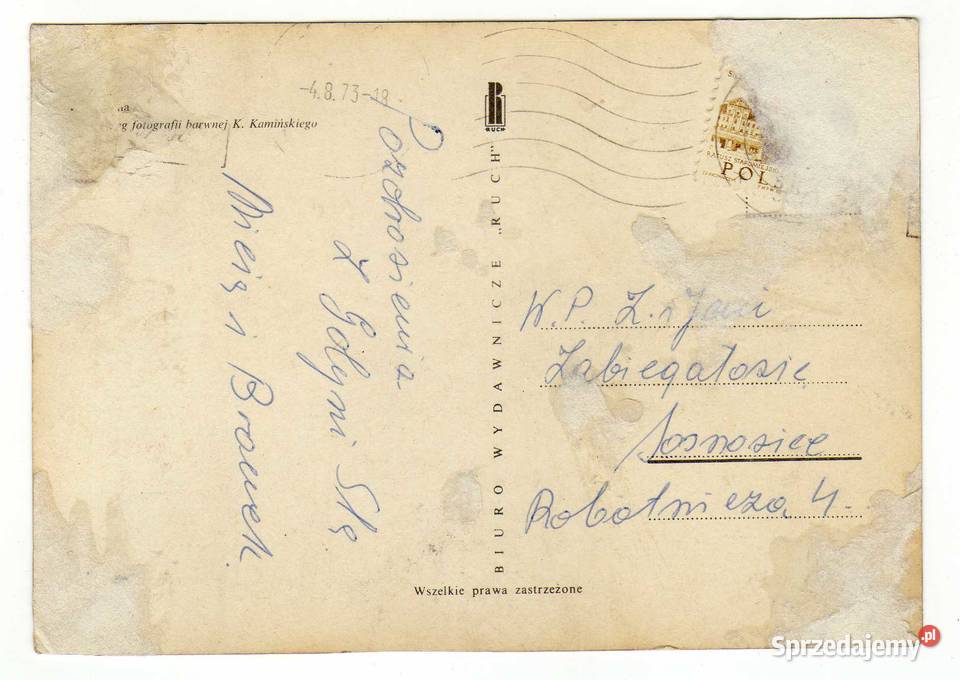 eg fotografii barwnej K. Kamińskiego
-4.8.73-18
Pozdrowienia
z Gdyni
i
RUCH
BIURO WYDAWNICZE „RUCH”
POLS
RATUSZ STAROMIEJSKI
W.P. Z. i J
Zabiegałowie
Sosnowiec
Robotnicza 4.
Wszelkie prawa zastrzeżone
Sprzedajemy.pl